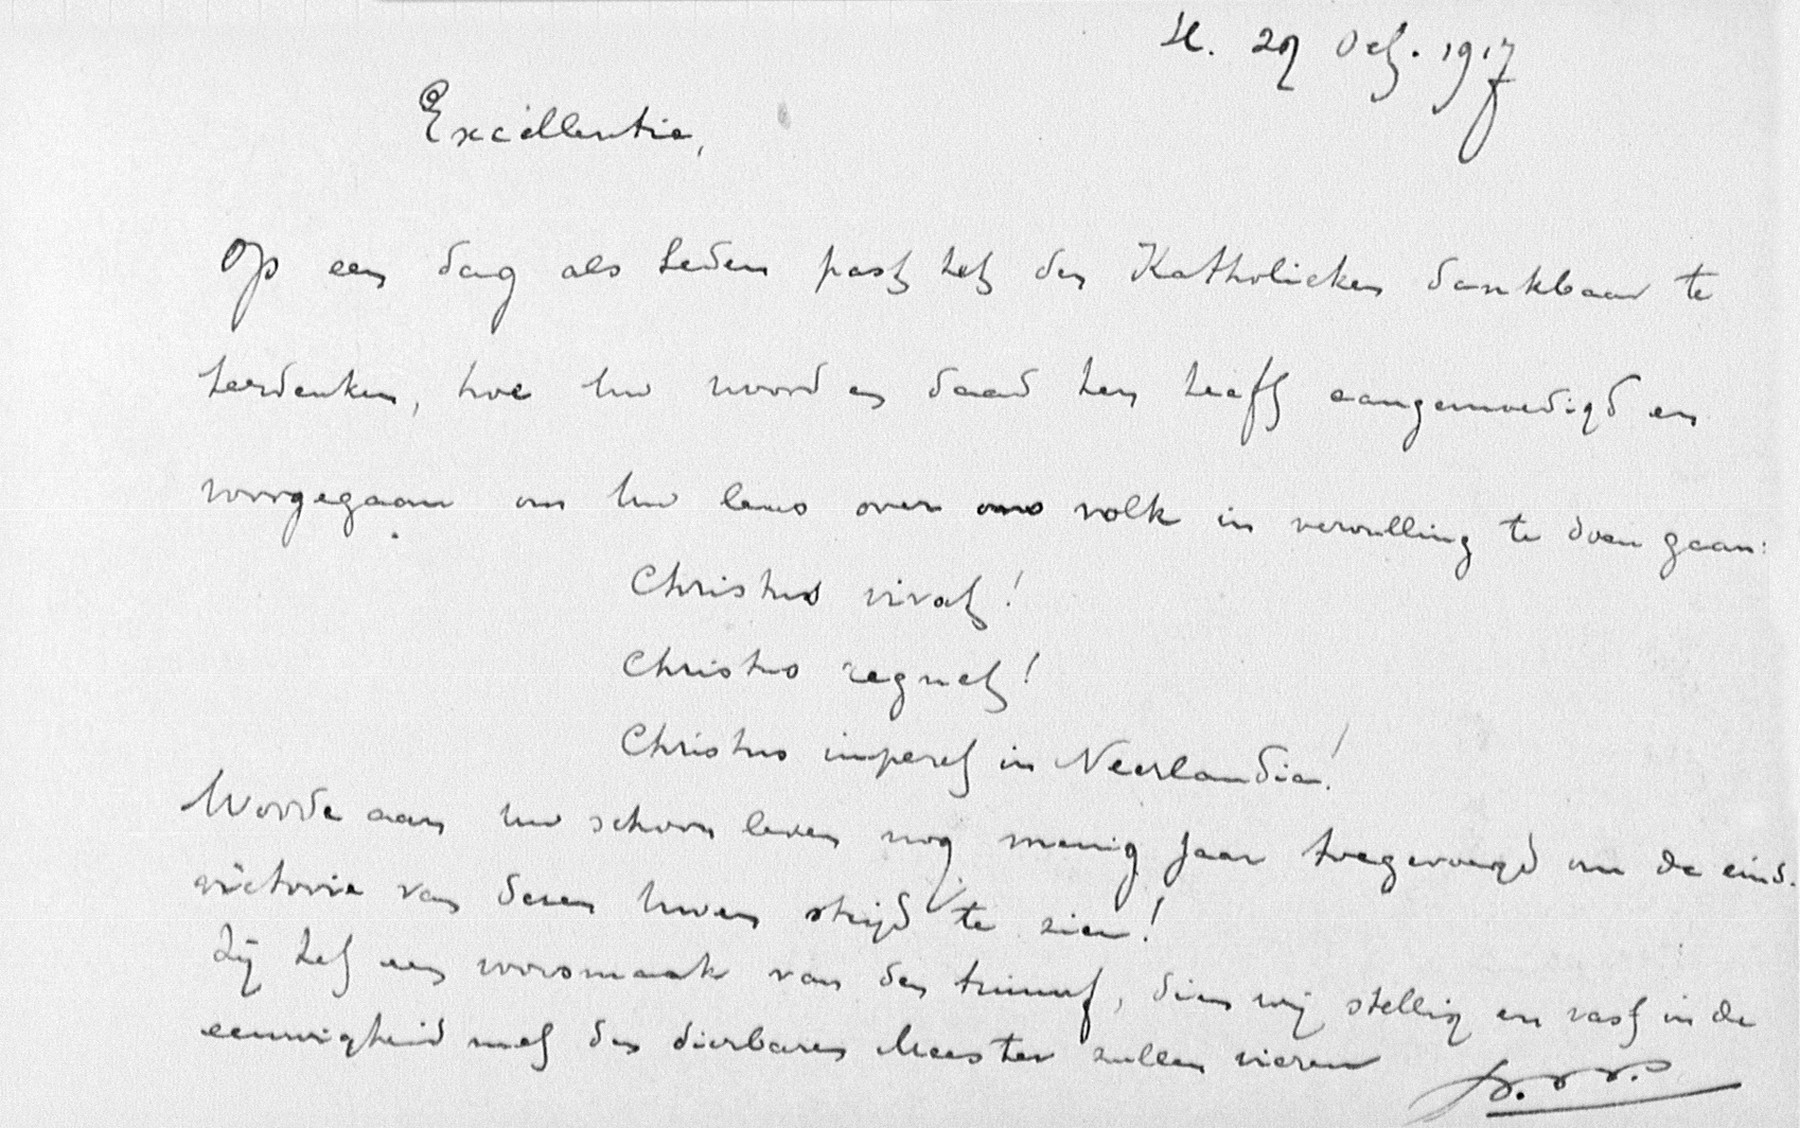 H. 29 Oct. 1917
Excellentie,
Op een dag als heden past het den Katholieken dankbaar te
herdenken, hoe Uw woord en daad hen heeft aangemoedigd en
voorgegaan om Uw leus over ons volk in vervulling te doen gaan:
Christus vivat!
Christus regnet!
Christus imperet in Neerlandia!
Worde aan Uw schoon leven nog menig jaar toegevoegd om de eind-
victorie van dezen Uwen strijd te zien!
Zij het een voorsmaak van den triumf, dien wij stellig en vast in de
eeuwigheid met den dierbaren Meester zullen vieren